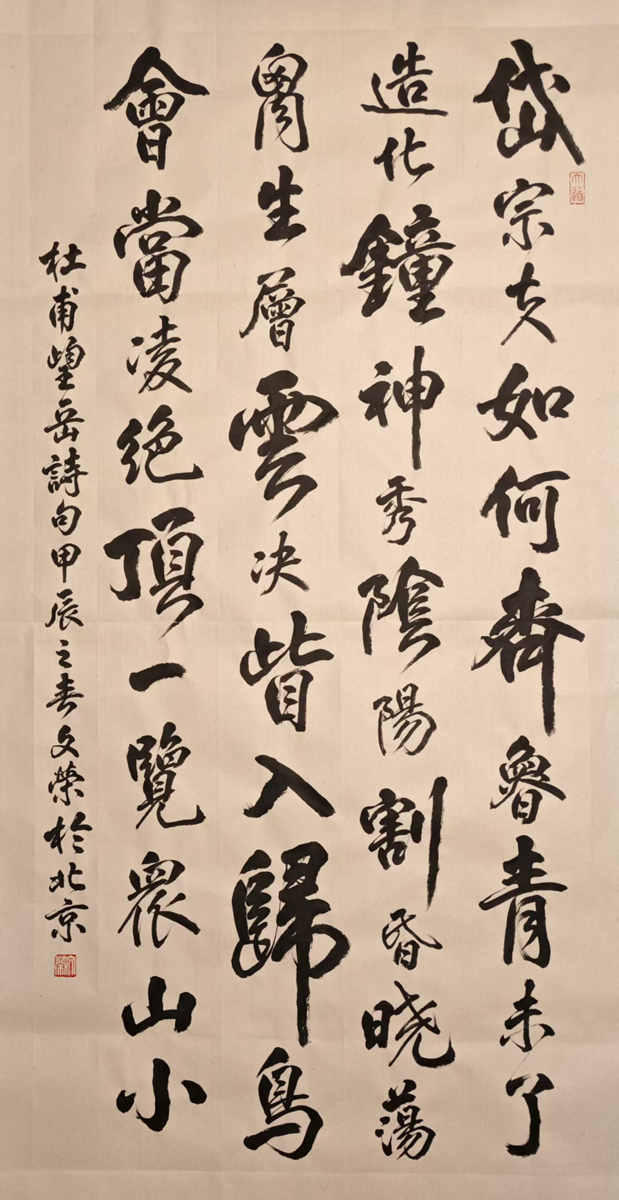 岱宗夫如何齊魯青未了
造化鐘神秀陰陽割昏晓蕩
胷生層雲决眥入歸鳥
會當凌絕頂一覽衆山小
杜甫望岳詩句甲辰之春文榮於北京